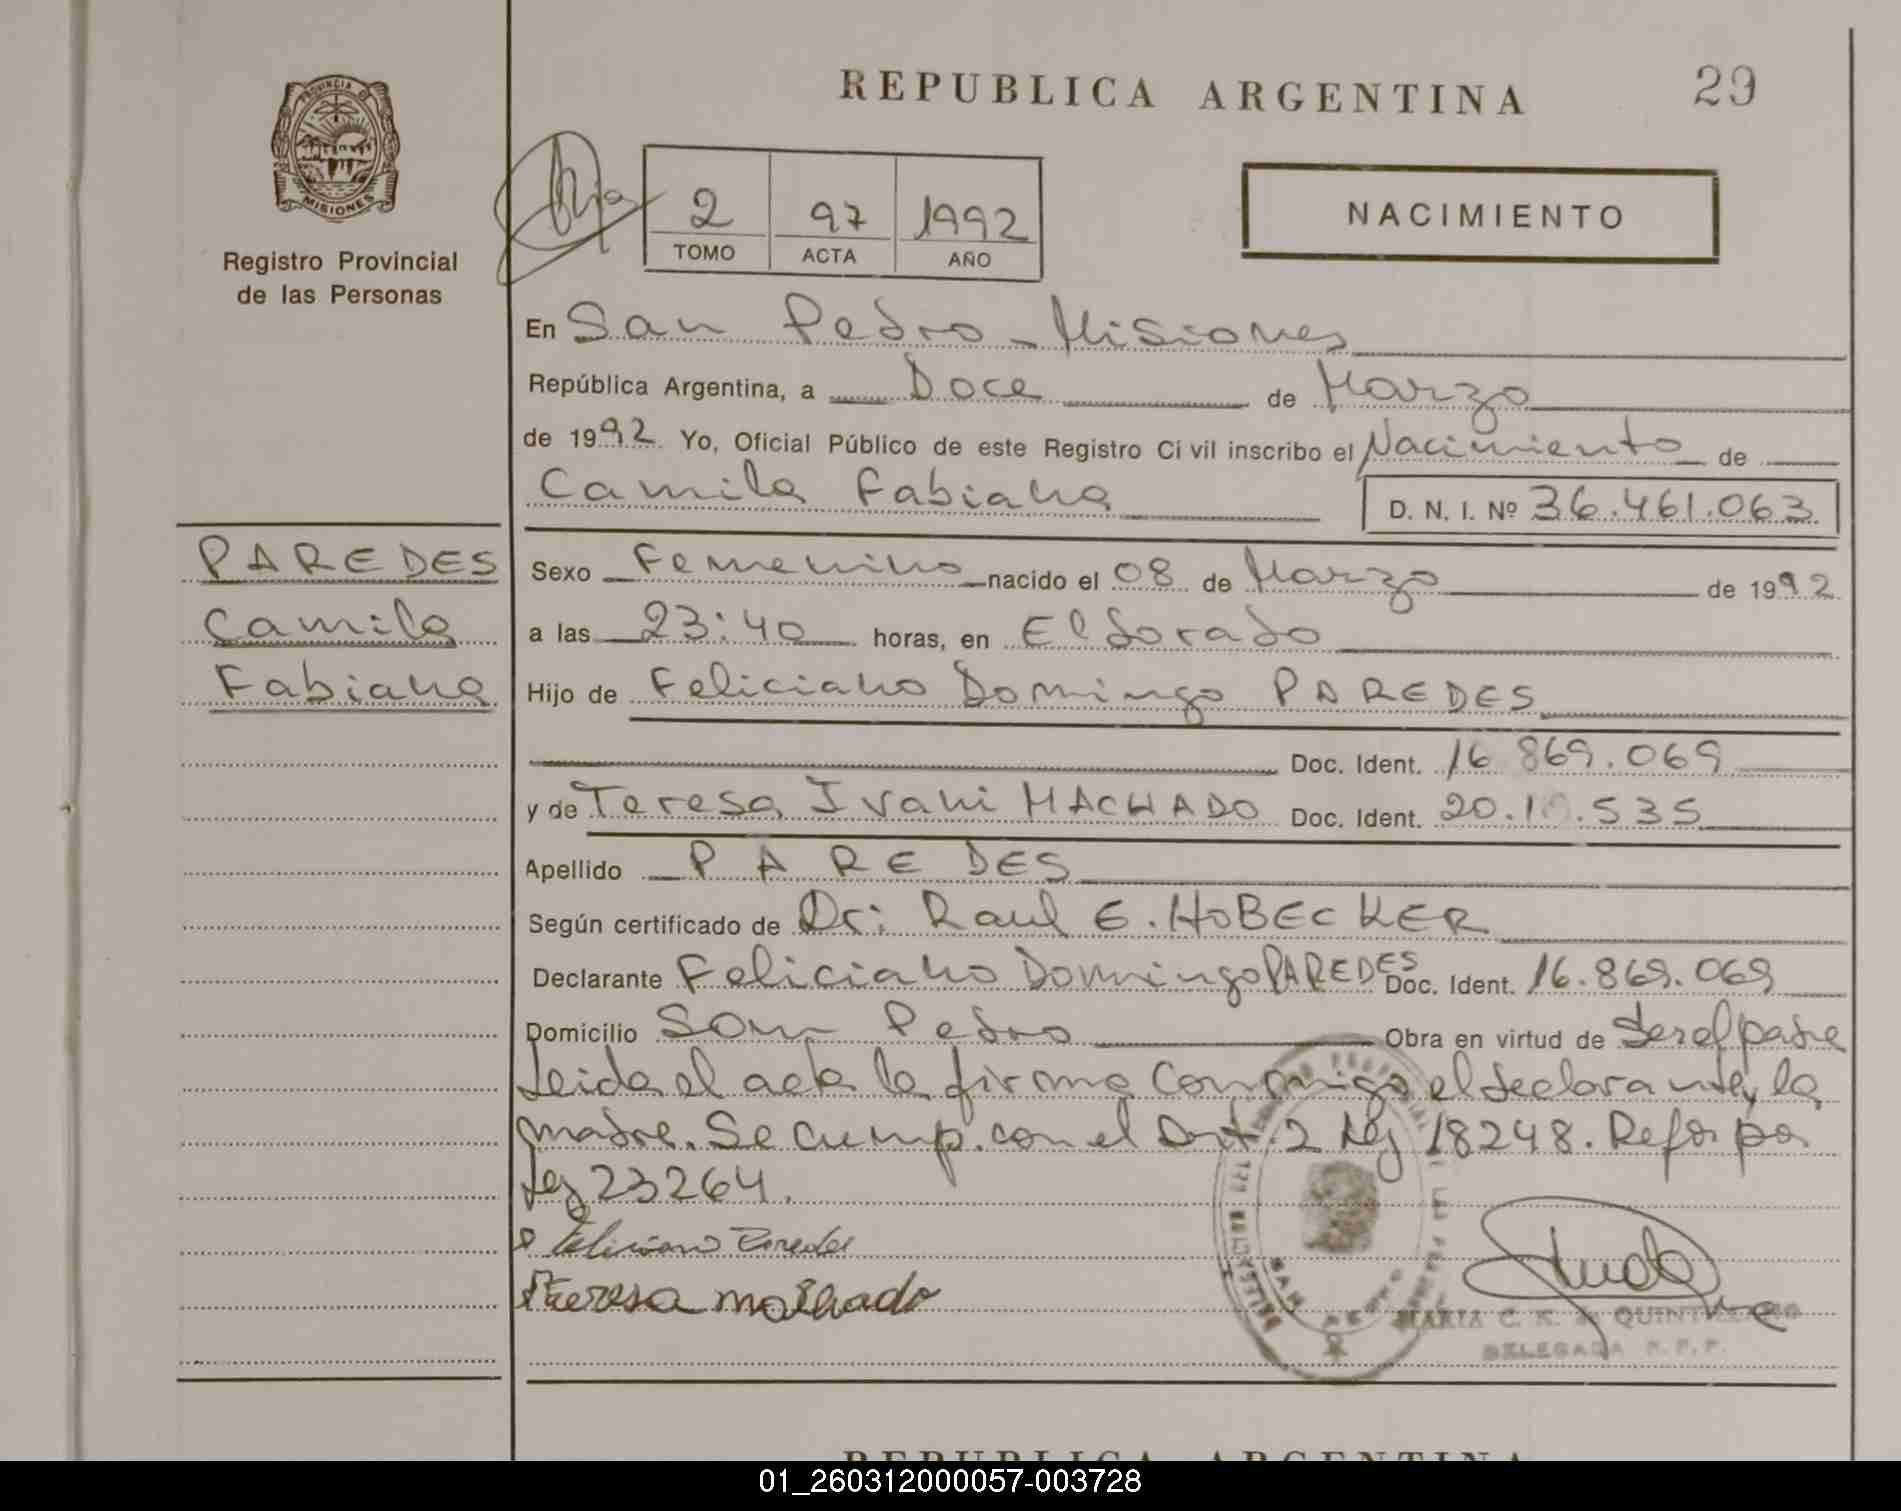 REPUBLICA ARGENTINA
29
PROVINCIA DE
MISIONES
Registro Provincial
de las Personas
2 97 1992
TOMO ACTA AÑO
NACIMIENTO
En San Pedro - Misiones
República Argentina, a Doce de Marzo
de 1992 Yo, Oficial Público de este Registro Civil inscribo el Nacimiento de
Camila Fabiana D. N. I. Nº 36.461.063
PAREDES
Camila
Fabiana
Sexo Femenino nacido el 08 de Marzo de 1992
a las 23:40 horas, en Eldorado
Hijo de Feliciano Domingo PAREDES
Doc. Ident. 16.869.069
y de Teresa Ivani MACHADO Doc. Ident. 20.1 .535
Apellido PAREDES
Según certificado de Dr: Raul E. HOBECKER
Declarante Feliciano Domingo PAREDES Doc. Ident. 16.869.069
Domicilio San Pedro Obra en virtud de ser el padre
Leida el acta la firma conmigo el declarante y la
madre. Se cump. con el Art. 2 Ley 18248. Refor por
Ley 23264.
Feliciano Paredes
Teresa machado
SAN PEDRO
MARIA C. K. de QUINTELANO
DELEGADA R.P.P.
REPUBLICA ARGENTINA
01_260312000057-003728